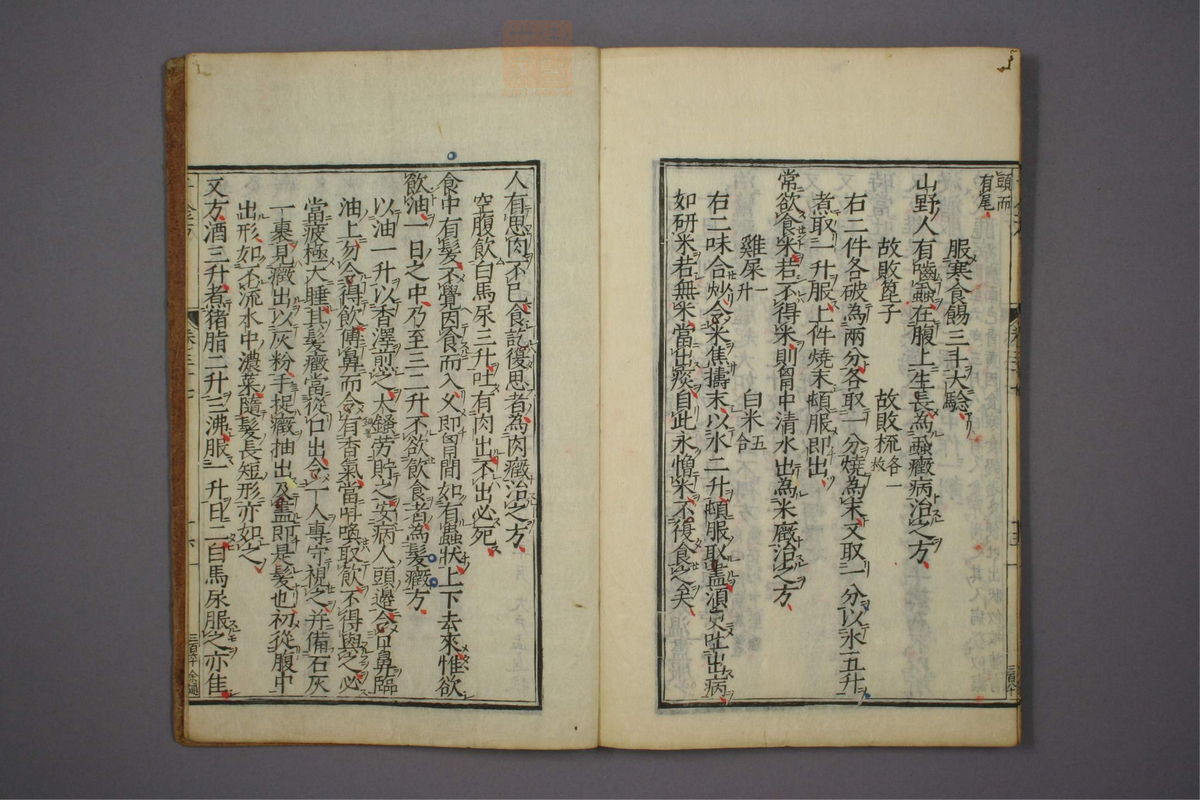 頭而
有尾
服寒食餳三斗大驗
山野人有嚙蝨在腹上生長為蝨癥病治之方
故敗篦子 故敗梳各一枚
右二件各破為兩分各取一分燒為末又取一分以水五升
煮取一升服上件燒末頓服即出
常欲食米若不得米則胷中清水出為米癥治之方
雞屎一升 白米五合
右二味合炒令米焦擣末以水二升頓服取盡須臾吐出病
如研米若無米當出痰自此永憎米不復食之矣
人有思肉不已食訖復思者為肉癥治之方
空腹飲白馬尿三升吐有肉出不出必死
食中有髮不覺因食而入又即胷間如有蟲狀上下去來惟欲
飲油一日之中乃至三二升不欲飲食者為髮癥方
以油一升以香澤煎之大鏟勞貯之安病人頭邊令口鼻臨
油上勿令得飲傅鼻而令有香氣當呌喚取飲不得與之必
當疲極大睡其髮癥當從口出令一人專守視之并備石灰
一裹見癥出以灰粉手捉癥抽出及盡即是髮也初從腹中
出形如不流水中濃菜隨髮長短形亦如之
又方酒三升煮猪脂二升三沸服一升日二白馬尿服之亦佳